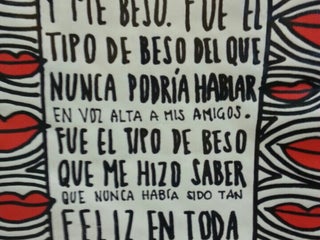 Y ME BESO. FUE EL
TIPO DE BESO DEL QUE
NUNCA PODRÍA HABLAR
EN VOZ ALTA A MIS AMIGOS.
FUE EL TIPO DE BESO
QUE ME HIZO SABER
QUE NUNCA HABÍA SIDO TAN
FELIZ EN TODA